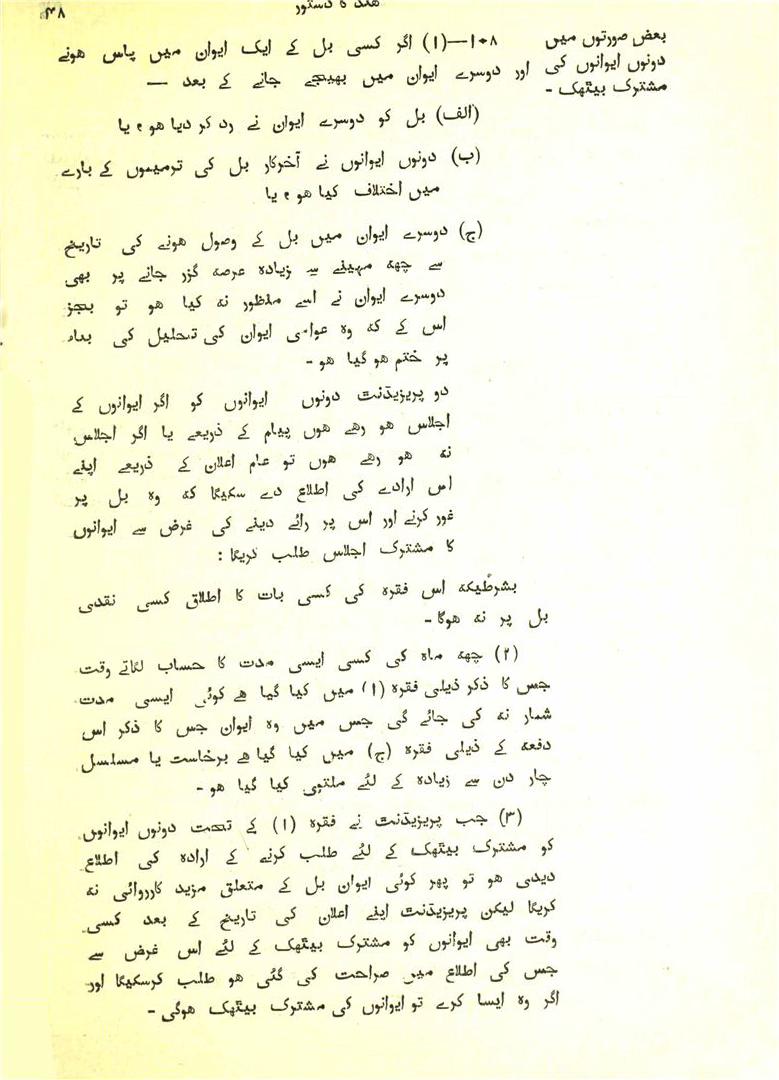 ہند کا دستور
۴۸
بعض صورتوں میں
دونوں ایوانوں کی
مشترک بیٹھک -
۱۰۸—(۱) اگر کسی بل کے ایک ایوان میں پاس ہونے
اور دوسرے ایوان میں بھیجے جانے کے بعد —
(الف) بل کو دوسرے ایوان نے رد کر دیا ہو ؟ یا
(ب) دونوں ایوانوں نے آخرکار بل کی ترمیموں کے بارے
میں اختلاف کیا ہو ؟ یا
(ج) دوسرے ایوان میں بل کے وصول ہونے کی تاریخ
سے چھہ مہینے سے زیادہ عرصہ گزر جانے پر بھی
دوسرے ایوان نے اسے منظور نہ کیا ہو تو بجز
اس کے کہ وہ عوامی ایوان کی تحلیل کی بناء
پر ختم ہو گیا ہو -
دو پریزیڈنٹ دونوں ایوانوں کو اگر ایوانوں کے
اجلاس ہو رہے ہوں پیام کے ذریعے یا اگر اجلاس
نہ ہو رہے ہوں تو عام اعلان کے ذریعے اپنے
اس ارادے کی اطلاع دے سکیگا کہ وہ بل پر
غور کرنے اور اس پر رائے دینے کی غرض سے ایوانوں
کا مشترک اجلاس طلب کریگا :
بشرطیکہ اس فقرہ کی کسی بات کا اطلاق کسی نقدی
بل پر نہ ہوگا -
(۲) چھہ ماہ کی کسی ایسی مدت کا حساب لگاتے وقت
جس کا ذکر ذیلی فقرہ (۱) میں کیا گیا ہے کوئی ایسی مدت
شمار نہ کی جائے گی جس میں وہ ایوان جس کا ذکر اس
دفعہ کے ذیلی فقرہ (ج) میں کیا گیا ہے برخاست یا مسلسل
چار دن سے زیادہ کے لئے ملتوی کیا گیا ہو -
(۳) جب پریزیڈنٹ نے فقرہ (۱) کے تحت دونوں ایوانوں
کو مشترک بیٹھک کے لئے طلب کرنے کے ارادہ کی اطلاع
دیدی ہو تو پھر کوئی ایوان بل کے متعلق مزید کارروائی نہ
کریگا لیکن پریزیڈنٹ اپنے اعلان کی تاریخ کے بعد کسی
وقت بھی ایوانوں کو مشترک بیٹھک کے لئے اس غرض سے
جس کی اطلاع میں صراحت کی گئی ہو طلب کرسکیگا اور
اگر وہ ایسا کرے تو ایوانوں کی مشترک بیٹھک ہوگی -